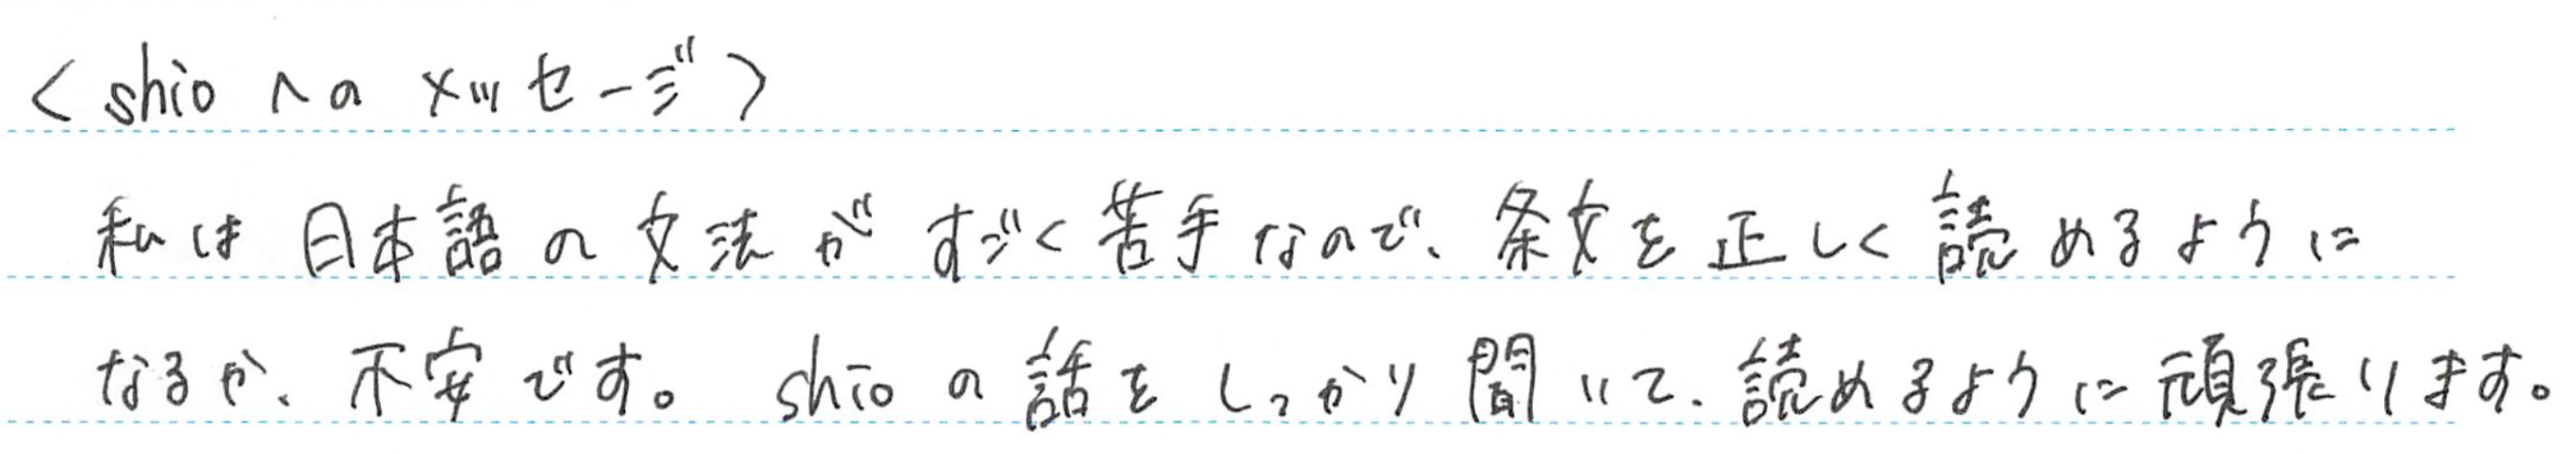 ＜shioへのメッセージ＞
私は日本語の文法がすごく苦手なので、条文を正しく読めるように
なるか、不安です。shioの話をしっかり聞いて、読めるように頑張ります。